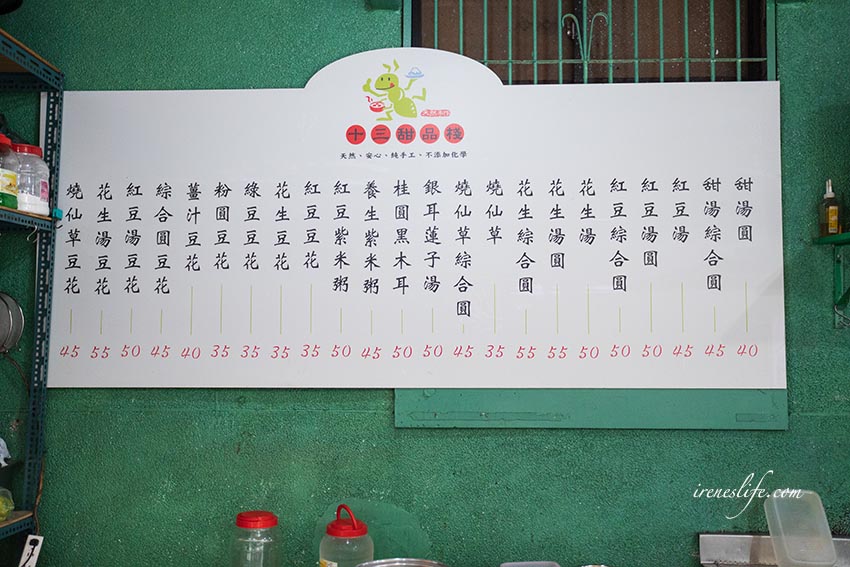 十三甜品棧
天然、安心、純手工、不添加化學
甜湯圓 40
甜湯綜合圓 45
紅豆湯 45
紅豆湯圓 50
紅豆綜合圓 50
花生湯 50
花生湯圓 55
花生綜合圓 55
燒仙草 35
燒仙草綜合圓 45
銀耳蓮子湯 50
桂圓黑木耳 50
養生紫米粥 45
紅豆紫米粥 50
紅豆豆花 35
花生豆花 35
綠豆豆花 35
粉圓豆花 35
薑汁豆花 40
綜合圓豆花 45
紅豆湯豆花 50
花生湯豆花 55
燒仙草豆花 45
ireneslife.com